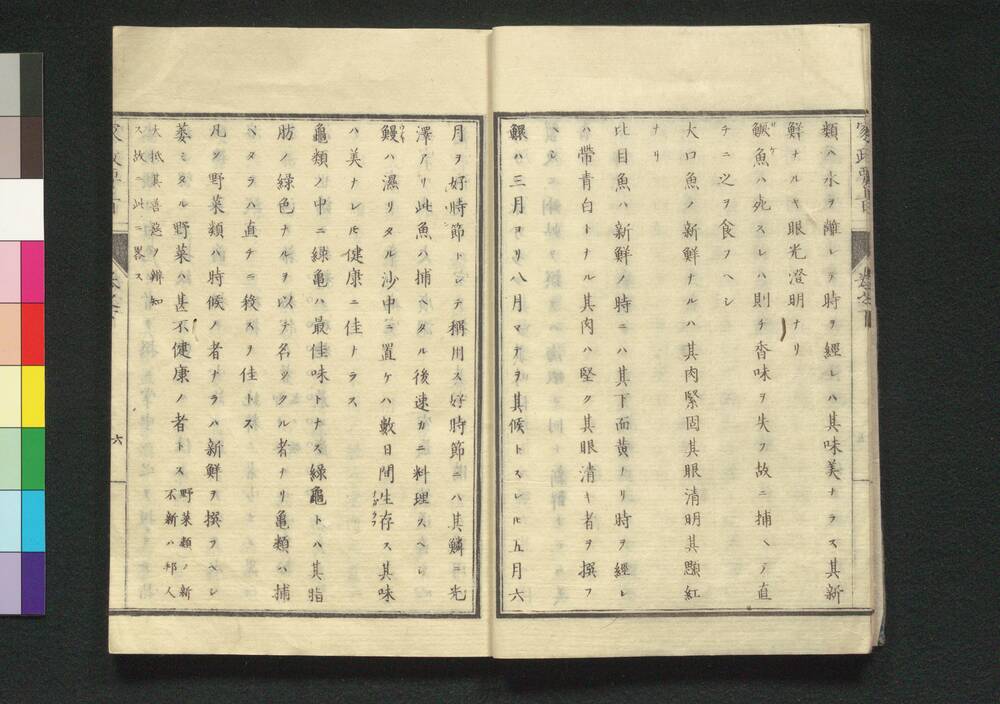 類ハ水ヲ離レテ時ヲ經レハ其味美ナラス其新
鮮ナルキ眼光澄明ナリ
鱖魚ハ死スレハ則チ香味ヲ失フ故ニ捕ヘテ直
チニ之ヲ食フヘシ
大口魚ノ新鮮ナルハ其肉緊固其眼清明其顋紅
ナリ
比目魚ハ新鮮ノ時ニハ其下面黄ナリ時ヲ經レ
ハ帶青白トナル其肉ハ堅ク其眼清キ者ヲ撰フ
ヘシ
鰥ハ三月ヨリ八月マテヲ其候トスレ𪜈五月六
月ヲ好時節トシテ稱用ス好時節ニハ其鱗ニ光
澤アリ此魚ハ捕ヘタル後速カニ料理スヘシ
鰻ハ濕リタル沙中ニ置ケハ數日間生存ス其味
ハ美ナレ𪜈健康ニ佳ナラス
龜類ノ中ニ緑龜ハ最佳味トナス緑龜トハ其脂
肪ノ緑色ナルヲ以テ名ツクル者ナリ亀類ハ捕
ヘタラハ直チニ殺スヲ佳トス
凡ソ野菜類ハ時候ノ者トラハ新鮮ヲ撰フヘシ
萎ミタル野菜ハ甚不健康ノ者トス野菜類ノ新
不新ハ邦人
大抵其善惡ヲ辨知
ス故ニ此ニ畧ス
六